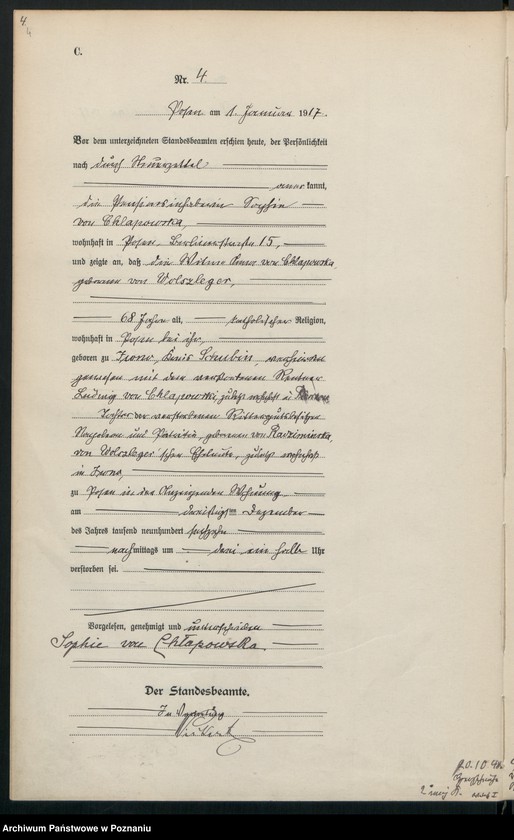 4.
4
C.
Nr. 4.
Posen am 1. Januar 1917.
Vor dem unterzeichneten Standesbeamten erschien heute, der Persönlichkeit
nach durch Steuerzettel
anerkannt,
die Pensionsinhaberin Sophie
von Chlapowska,
wohnhaft in Posen, Berlinerstraße 15,
und zeigte an, daß die Witwe von Chlapowska,
geborene von Wolszleger,
68 Jahre alt, katholischer Religion,
wohnhaft in Posen bei ihr,
geboren zu Kreis Schubin, verheiratet
gewesen mit dem verstorbenen Rentner
Ludwig von Chlapowski, zuletzt wohnhaft in
Tochter der verstorbenen Rittergutsbesitzer
Napoleon und geborenen von
von Wolszleger'schen Eheleute, zuletzt wohnhaft
in
zu Posen in der Anzeigenden Wohnung
am dreißigsten Dezember
des Jahres tausend neunhundert sechzehn
nachmittags um drei ein halb Uhr
verstorben sei.
Vorgelesen, genehmigt und unterschrieben
Sophie von Chłapowska.
Der Standesbeamte.
In Vertretung
Archiwum Państwowe w Poznaniu